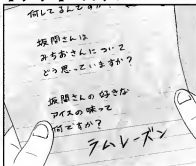 何してるんですか
坂間さんは
みちおさんについて
どう思っていますか？
坂間さんの好きな
アイスの味って
何ですか？
ラムレーズン